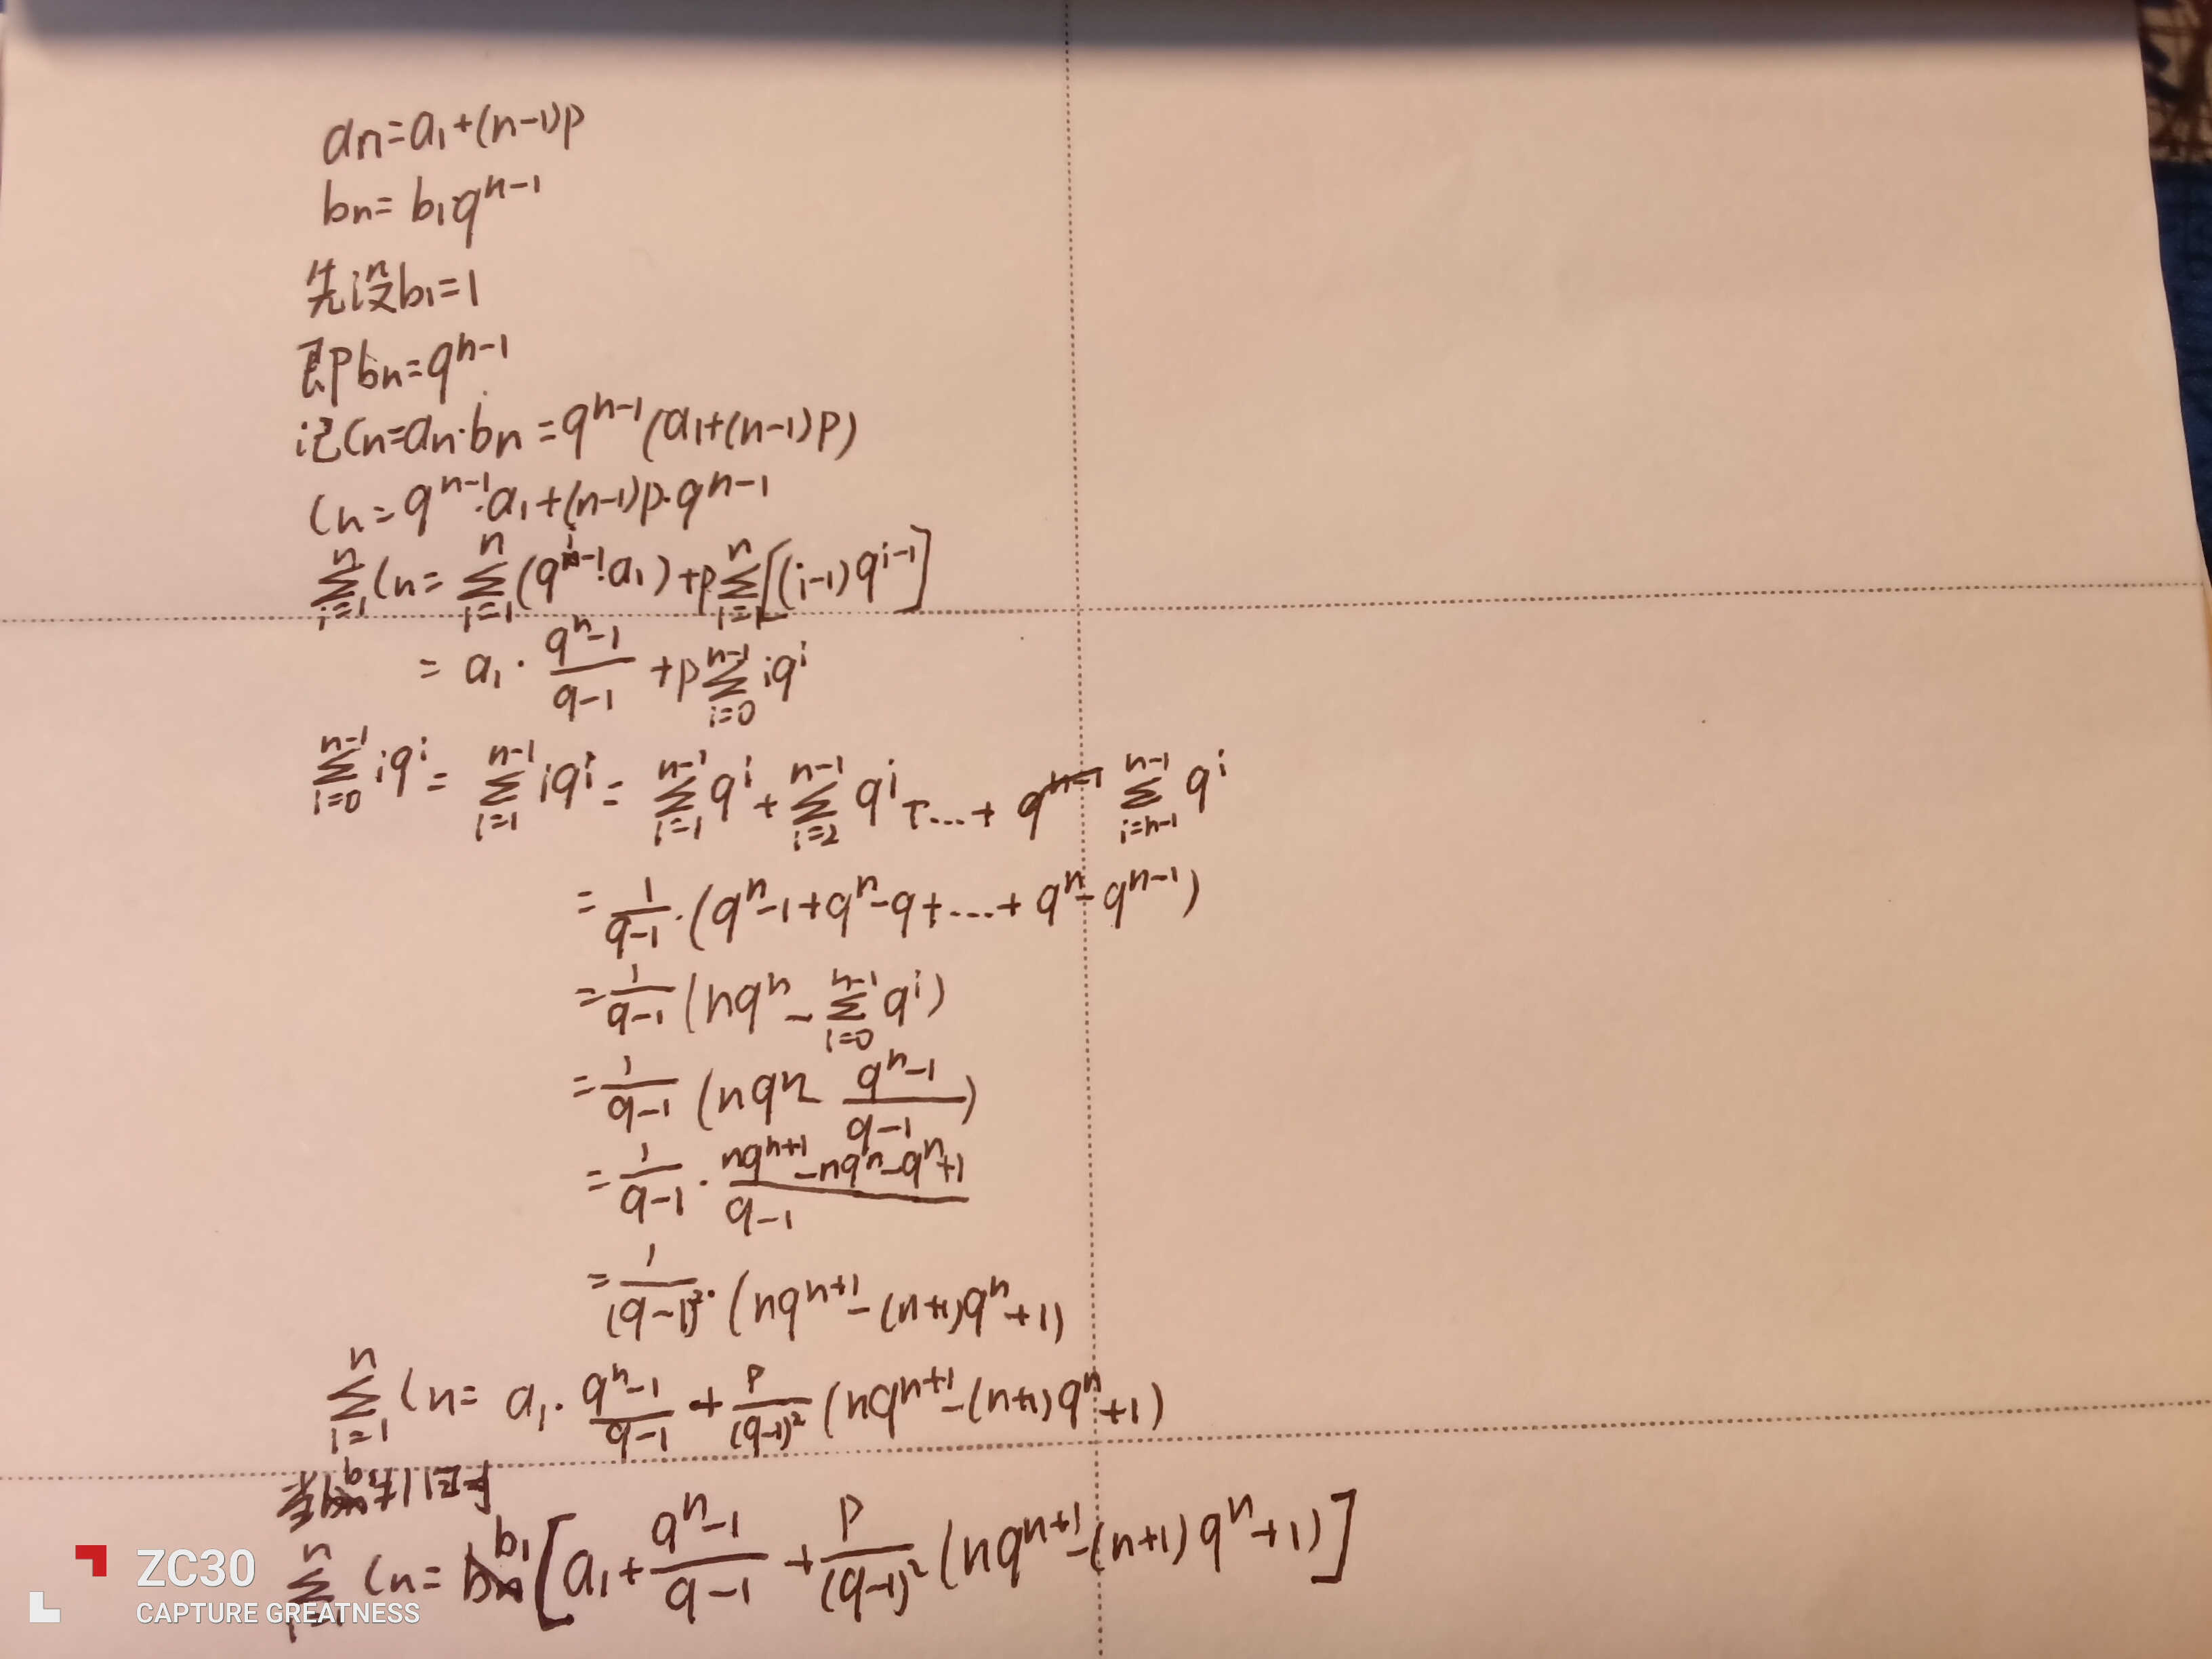 an=a₁+(n-1)p
bn=b₁q^{n-1}
先设b₁=1
即bn=q^{n-1}
记Cn=an·bn=q^{n-1}(a₁+(n-1)p)
Cn=q^{n-1}·a₁+(n-1)p·q^{n-1}
\sum_{i=1}^{n} Cn=\sum_{i=1}^{n}(q^{i-1}·a₁)+p\sum_{i=1}^{n}[(i-1)q^{i-1}]
=a₁·\frac{q^n-1}{q-1}+p\sum_{i=0}^{n-1}iq^i
\sum_{i=0}^{n-1}iq^i=\sum_{i=1}^{n-1}iq^i=\sum_{i=1}^{n-1}q^i+\sum_{i=2}^{n-1}q^i+...+\sum_{i=n-1}^{n-1}q^i
=\frac{1}{q-1}·(q^n-1+q^n-q+...+q^n-q^{n-1})
=\frac{1}{q-1}(nq^n-\sum_{i=0}^{n-1}q^i)
=\frac{1}{q-1}(nq^n-\frac{q^n-1}{q-1})
=\frac{1}{q-1}·\frac{nq^{n+1}-nq^n-q^n+1}{q-1}
=\frac{1}{(q-1)^2}·(nq^{n+1}-(n+1)q^n+1)
\sum_{i=1}^{n} Cn=a₁·\frac{q^n-1}{q-1}+\frac{p}{(q-1)^2}(nq^{n+1}-(n+1)q^n+1)
\sum_{i=1}^{n} Cn=b₁[a₁+\frac{q^n-1}{q-1}+\frac{p}{(q-1)^2}(nq^{n+1}-(n+1)q^n+1)]
ZC30
CAPTURE GREATNESS